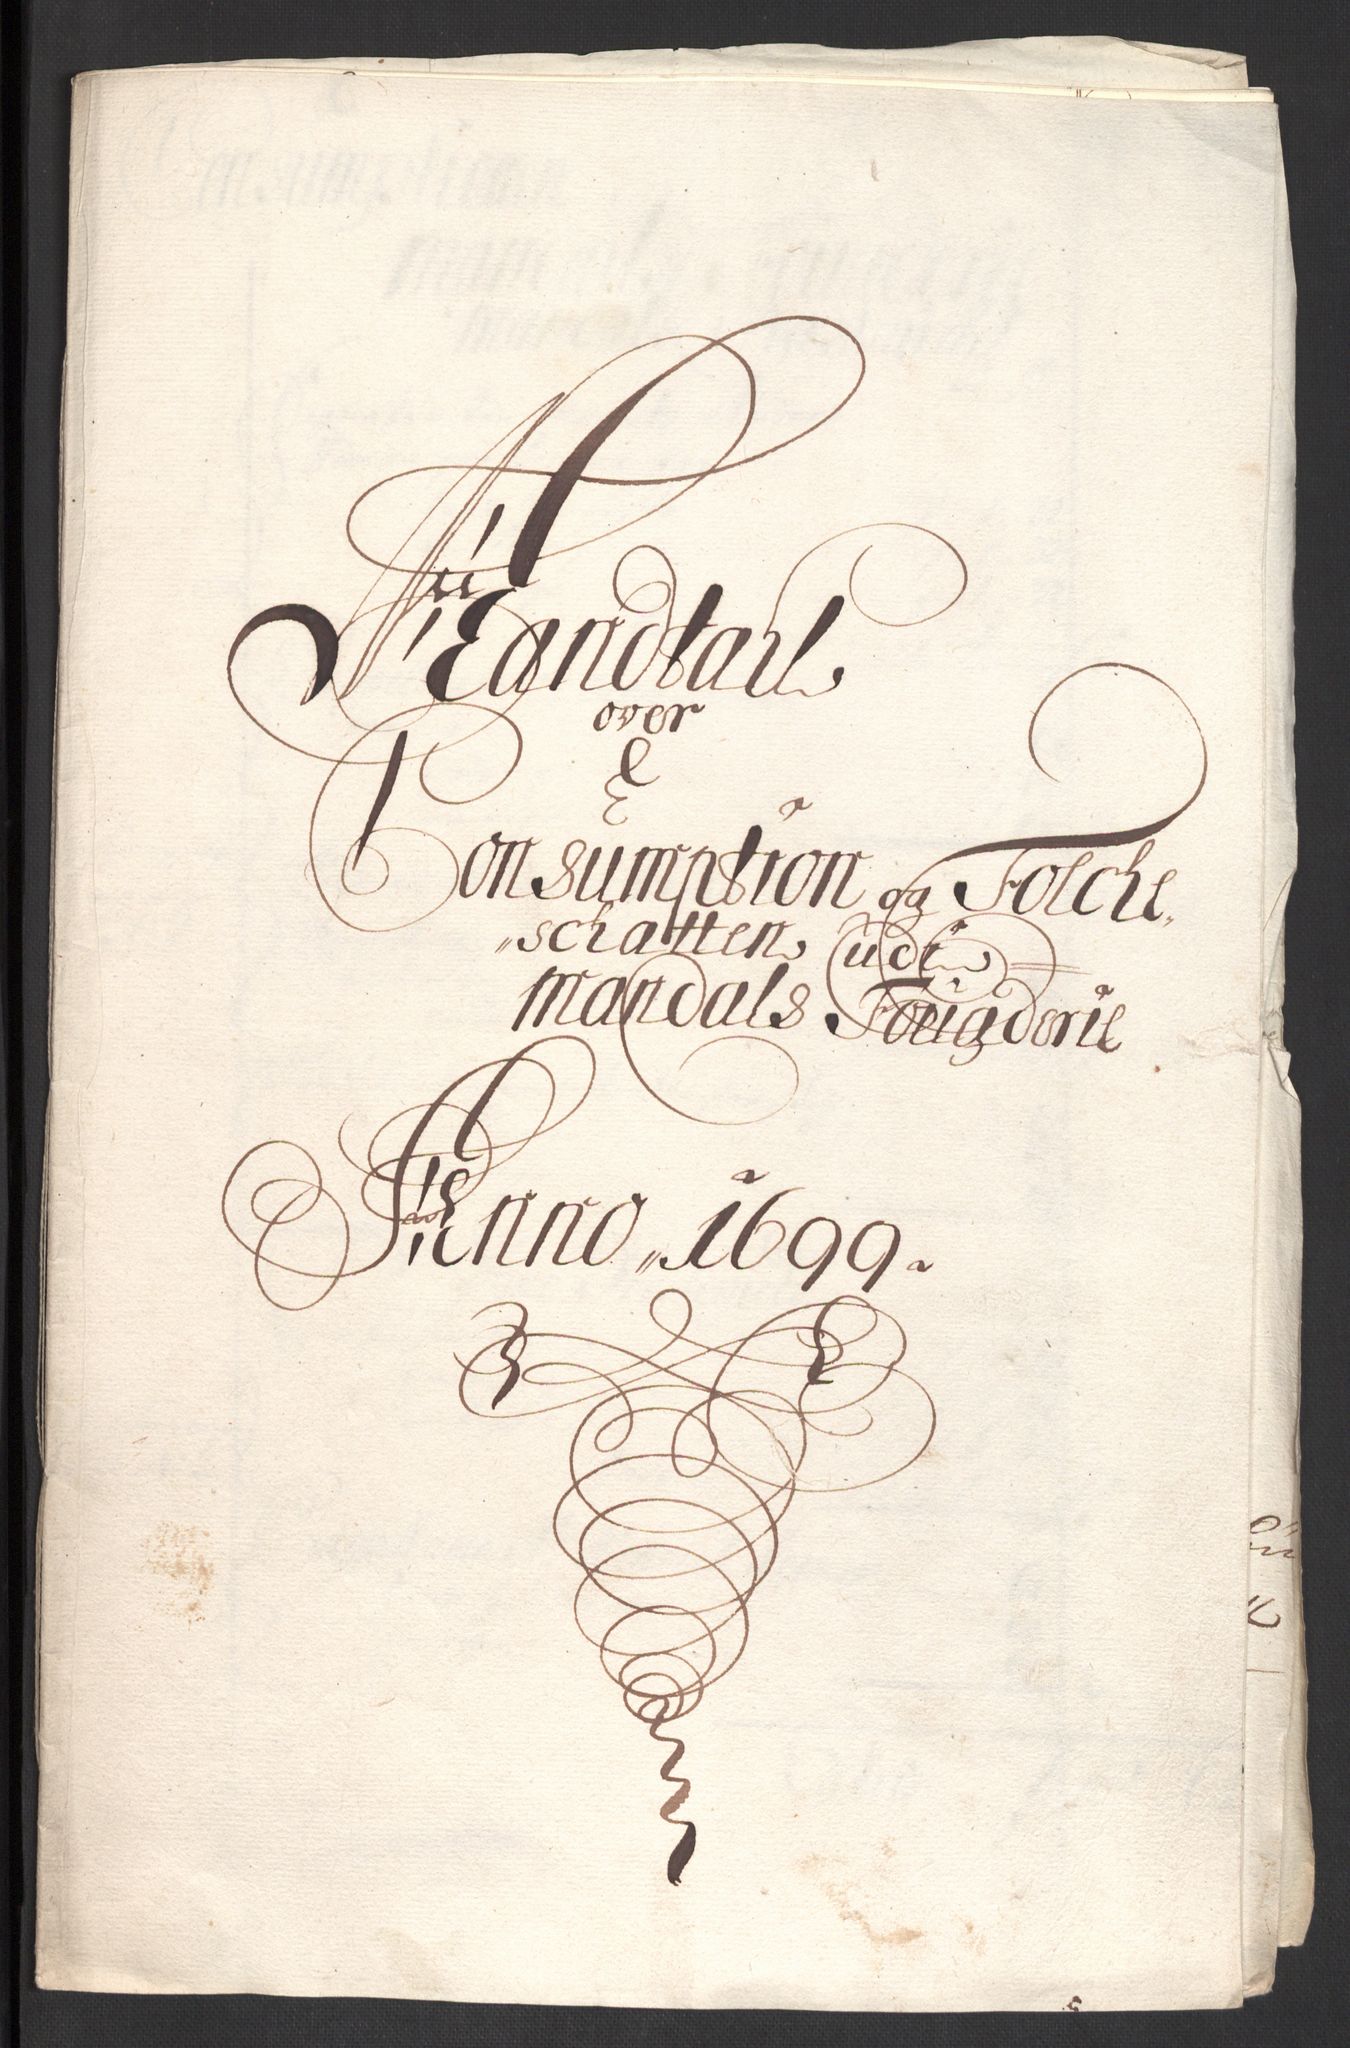 Mandtail
over
Consumption og Folche
schatten udi
mandals Fougderie
Anno 1699